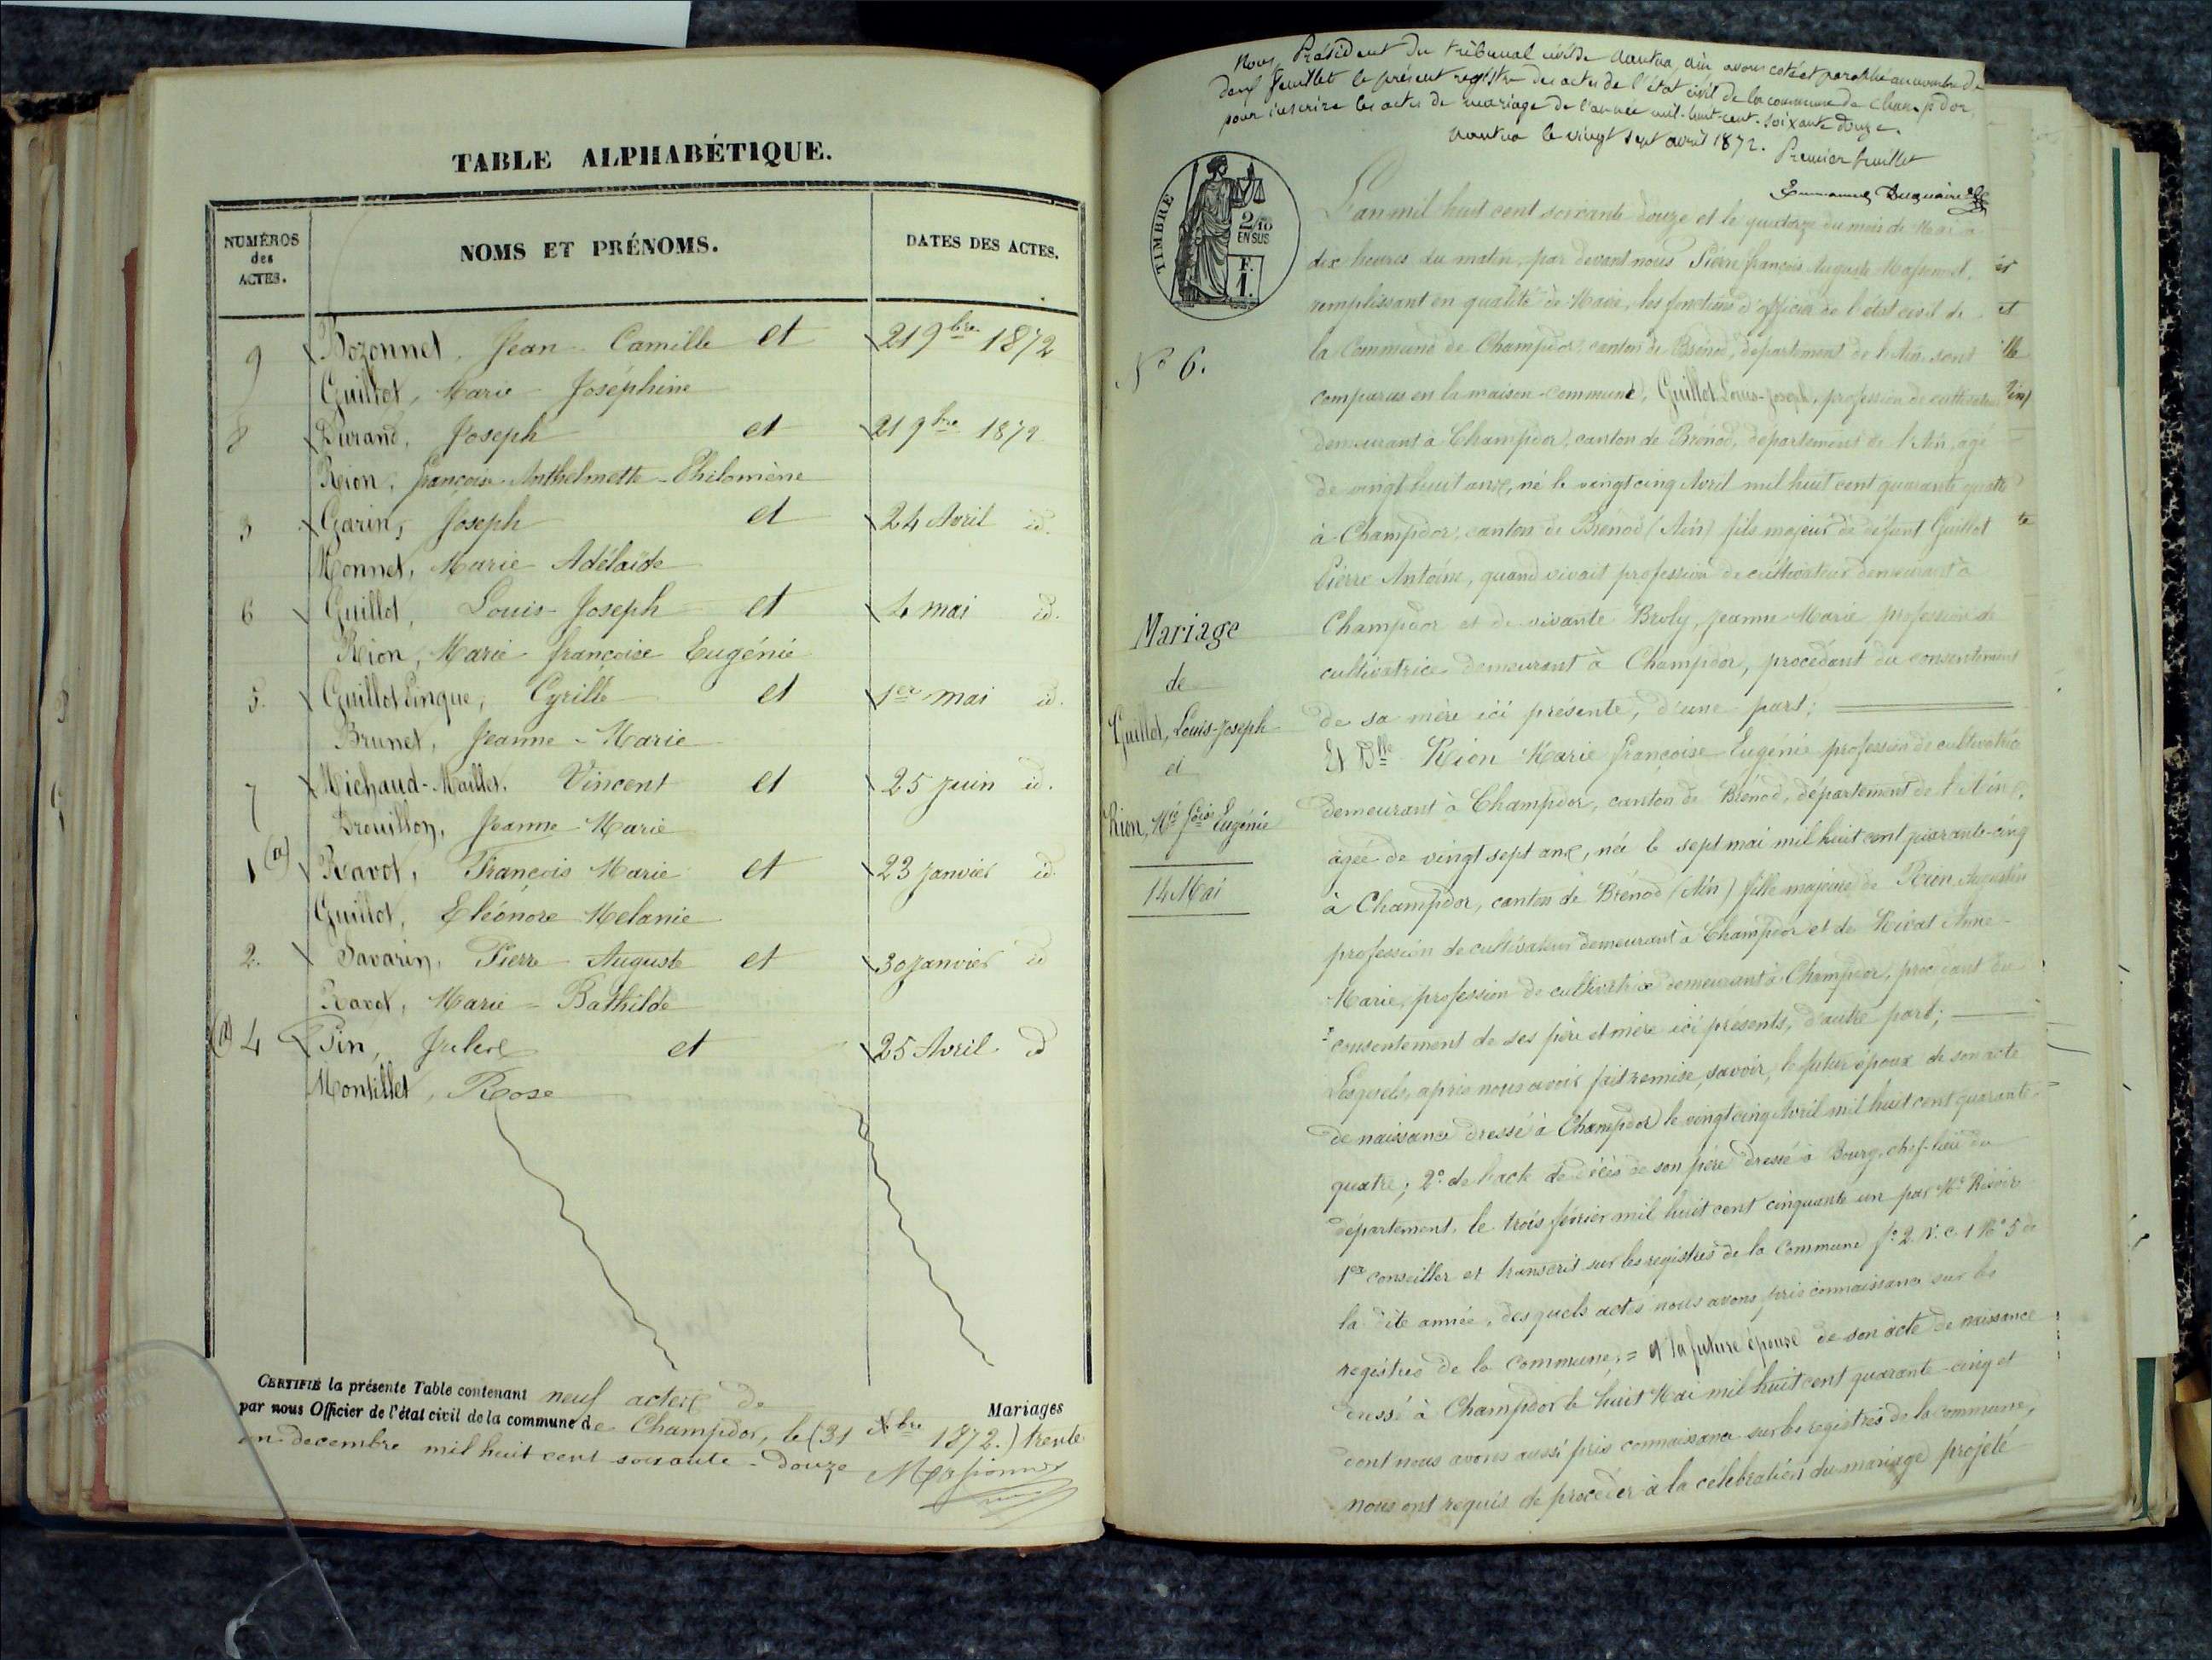 TABLE ALPHABÉTIQUE.
NUMÉROS des ACTES.
NOMS ET PRÉNOMS.
DATES DES ACTES.
9 Bozonnet, Jean-Camille et 21 9bre 1872
Guillot, Marie-Joséphine
8 Durand, Joseph et 21 9bre 1872
Rion, Françoise Anthelmette-Philomène
3 Garin, Joseph et 24 Avril id.
Monnet, Marie Adélaïde
6 Guillot, Louis-Joseph et 4 mai id.
Rion, Marie-françoise Eugénie
5. Guillot Pinque, Cyrille et 1er mai id.
Brunet, Jeanne-Marie
7 Michaud-Maillet, Vincent et 25 Juin id.
Brouillon, Jeanne-Marie
1 (a) Ravot, François Marie et 23 janvier id.
Guillot, Eléonore Melanie
2. Savarin, Pierre-Auguste et 30 janvier id
Ravot, Marie-Bathilde
(a) 4 Pin, Jules et 25 Avril id
Montillet, Rose
CERTIFIÉ la présente Table contenant neuf actes de Mariages
par nous Officier de l'état civil de la commune de Champdor, le (31 Xbre 1872.) trente
un decembre mil huit cent soixante-douze
Nous, Président du tribunal civil de Nantua, ain avons coté et paraphé au nombre de
deux feuillets le présent registre des actes de l'état civil de la commune de Champdor,
pour inscrire les actes de mariage de l'année mil-huit-cent-soixante douze.
Nantua le vingt sept avril 1872.
Premier feuillet
TIMBRE
2/10
EN SUS
F.
1.
N° 6.
Mariage
de
Guillot, Louis-Joseph
et
Rion, Mie foise Eugénie
14 Mai
L'an mil huit cent soixante douze et le quatorze du mois de Mai à
dix heures du matin, par devant nous Pierre françois Auguste
remplissant en qualité de Maire, les fonctions d'officier de l'état civil de
la Commune de Champdor, canton de Brénod, département de l'Ain sont
comparus en la maison-commune, Guillot Louis-Joseph, profession de cultivateur
demeurant à Champdor, canton de Brénod, département de l'Ain, âgé
de vingt huit ans, né le vingt cinq Avril mil huit cent quarante quatre
à Champdor, canton de Brénod (Ain) fils majeur de défunt Guillot
Pierre Antoine, quand vivait profession de cultivateur demeurant à
Champdor et de vivante Broly, Jeanne-Marie profession de
cultivatrice demeurant à Champdor, procédant du consentement
de sa mère ici présente, d'une part;
Et Dlle Rion Marie françoise Eugénie profession de cultivatrice
demeurant à Champdor, canton de Brénod, département de l'Ain,
âgée de vingt sept ans, née le sept mai mil huit cent quarante-cinq
à Champdor, canton de Brénod (Ain) fille majeure de Rion Augustin
profession de cultivateur demeurant à Champdor et de Nivat Anne-
Marie, profession de cultivatrice demeurant à Champdor, procédant du
consentement de ses père et mère ici présents, d'autre part;
Lesquels, après nous avoir fait remise, savoir, le futur époux de son acte
de naissance dressé à Champdor le vingt cinq Avril mil huit cent quarante-
quatre; 2° de l'acte de décès de son père dressé à Bourg, chef-lieu du
département, le trois février mil huit cent cinquante un par Mr
1er conseiller et transcrit sur les registres de la Commune f° 2. R. c. 1 N° 5 de
la dite année, desquels actes nous avons pris connaissance sur les
registres de la Commune, = et la future épouse de son acte de naissance
dressé à Champdor le huit Mai mil huit cent quarante-cinq et
dont nous avons aussi pris connaissance sur les registres de la commune,
nous ont requis de procéder à la célébration du mariage projeté